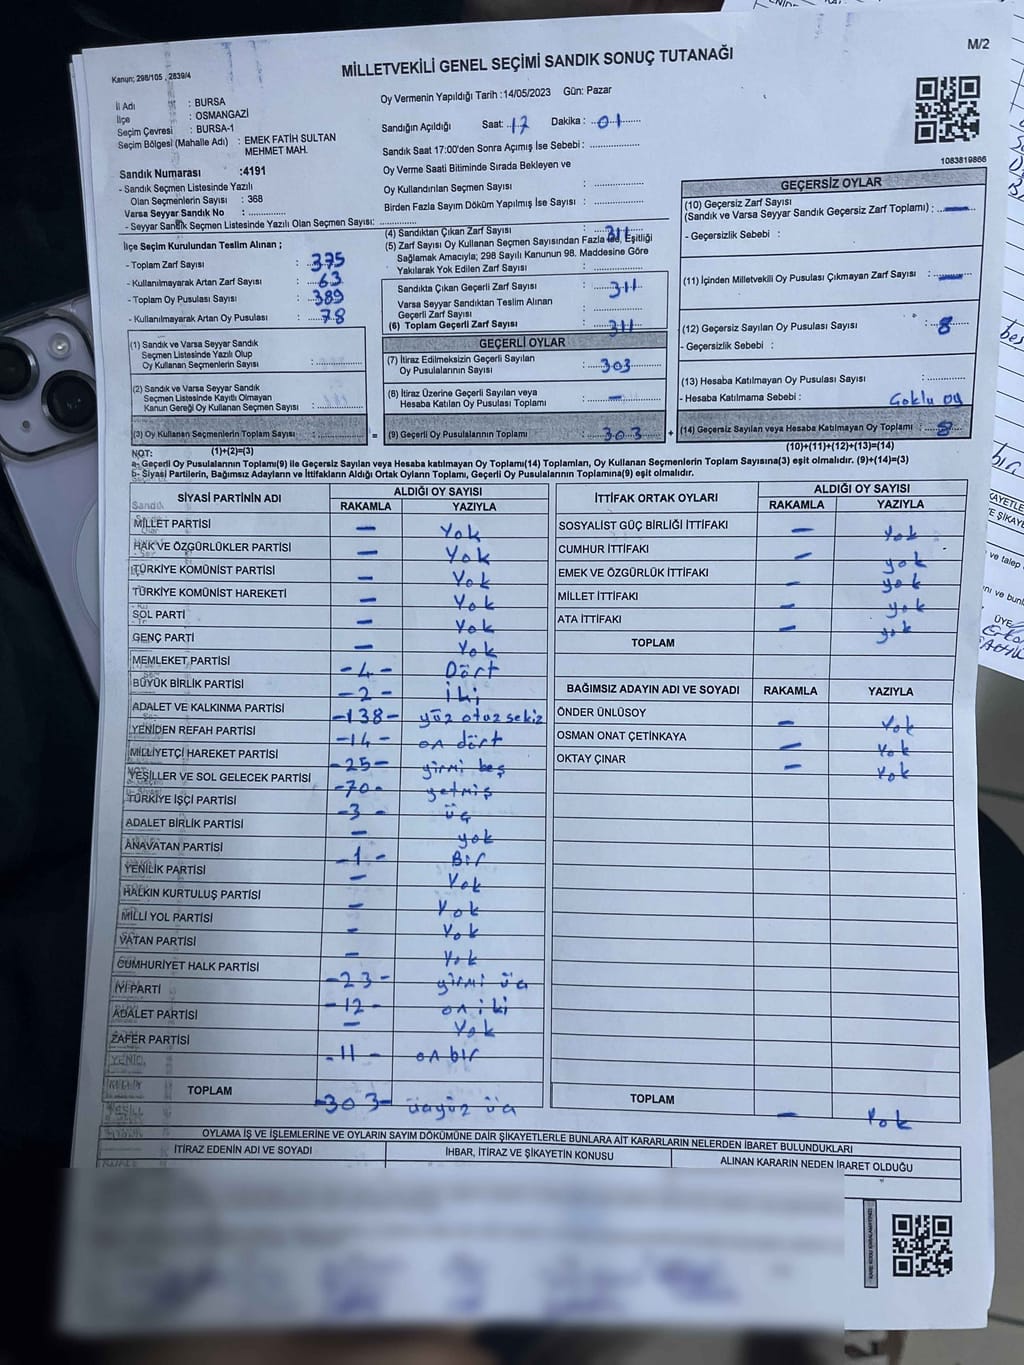 M/2
Kanun; 298/105 , 2839/4
MİLLETVEKİLİ GENEL SEÇİMİ SANDIK SONUÇ TUTANAĞI
İl Adı : BURSA
İlçe : OSMANGAZİ
Seçim Çevresi : BURSA-1
Seçim Bölgesi (Mahalle Adı) : EMEK FATİH SULTAN
MEHMET MAH.
Sandık Numarası :4191
- Sandık Seçmen Listesinde Yazılı
Olan Seçmenlerin Sayısı : 368
Varsa Seyyar Sandık No : ..............
- Seyyar Sandık Seçmen Listesinde Yazılı Olan Seçmen Sayısı: ..............
Oy Vermenin Yapıldığı Tarih :14/05/2023 Gün: Pazar
Sandığın Açıldığı Saat: 17 Dakika : 01
Sandık Saat 17:00'den Sonra Açımış İse Sebebi : ..............
Oy Verme Saati Bitiminde Sırada Bekleyen ve
Oy Kullandırılan Seçmen Sayısı : ..............
Birden Fazla Sayım Döküm Yapılmış İse Sayısı : ..............
1083819866
İlçe Seçim Kurulundan Teslim Alınan ;
- Toplam Zarf Sayısı : 375
- Kullanılmayarak Artan Zarf Sayısı : 63
- Toplam Oy Pusulası Sayısı : 389
- Kullanılmayarak Artan Oy Pusulası : 78
(1) Sandık ve Varsa Seyyar Sandık
Seçmen Listesinde Yazılı Olup
Oy Kullanan Seçmenlerin Sayısı : ..............
(2) Sandık ve Varsa Seyyar Sandık
Seçmen Listesinde Kayıtlı Olmayan
Kanun Gereği Oy Kullanan Seçmen Sayısı : ..............
(3) Oy Kullanan Seçmenlerin Toplam Sayısı : .............. =
(1)+(2)=(3)
(4) Sandıktan Çıkan Zarf Sayısı : 311
(5) Zarf Sayısı Oy Kullanan Seçmen Sayısından Fazla İse, Eşitliği
Sağlamak Amacıyla; 298 Sayılı Kanunun 98. Maddesine Göre
Yakılarak Yok Edilen Zarf Sayısı : ..............
Sandıkta Çıkan Geçerli Zarf Sayısı : 311
Varsa Seyyar Sandıktan Teslim Alınan
Geçerli Zarf Sayısı : ..............
(6) Toplam Geçerli Zarf Sayısı : 311
GEÇERLİ OYLAR
(7) İtiraz Edilmeksizin Geçerli Sayılan
Oy Pusulalarının Sayısı : 303
(8) İtiraz Üzerine Geçerli Sayılan veya
Hesaba Katılan Oy Pusulası Toplamı : -
(9) Geçerli Oy Pusulalarının Toplamı : 303 +
GEÇERSİZ OYLAR
(10) Geçersiz Zarf Sayısı
(Sandık ve Varsa Seyyar Sandık Geçersiz Zarf Toplamı) : -
- Geçersizlik Sebebi :
(11) İçinden Milletvekili Oy Pusulası Çıkmayan Zarf Sayısı : -
(12) Geçersiz Sayılan Oy Pusulası Sayısı : 8
- Geçersizlik Sebebi :
(13) Hesaba Katılmayan Oy Pusulası Sayısı : ..............
- Hesaba Katılmama Sebebi : Çoklu oy
(14) Geçersiz Sayılan veya Hesaba Katılmayan Oy Toplamı : 8
(10)+(11)+(12)+(13)=(14)
NOT:
a- Geçerli Oy Pusulalarının Toplamı(9) ile Geçersiz Sayılan veya Hesaba katılmayan Oy Toplamı(14) Toplamları, Oy Kullanan Seçmenlerin Toplam Sayısına(3) eşit olmalıdır. (9)+(14)=(3)
b- Siyasi Partilerin, Bağımsız Adayların ve İttifakların Aldığı Ortak Oyların Toplamı, Geçerli Oy Pusulalarının Toplamına(9) eşit olmalıdır.
SİYASİ PARTİNİN ADI ALDIĞI OY SAYISI
RAKAMLA YAZIYLA
MİLLET PARTİSİ - Yok
HAK VE ÖZGÜRLÜKLER PARTİSİ - Yok
TÜRKİYE KOMÜNİST PARTİSİ - Yok
TÜRKİYE KOMÜNİST HAREKETİ - Yok
SOL PARTİ - Yok
GENÇ PARTİ - Yok
MEMLEKET PARTİSİ -4- Dört
BÜYÜK BİRLİK PARTİSİ -2- İki
ADALET VE KALKINMA PARTİSİ -138- yüz otuz sekiz
YENİDEN REFAH PARTİSİ -14- on dört
MİLLİYETÇİ HAREKET PARTİSİ -25- yirmi beş
YEŞİLLER VE SOL GELECEK PARTİSİ -70- yetmiş
TÜRKİYE İŞÇİ PARTİSİ -3- üç
ADALET BİRLİK PARTİSİ - yok
ANAVATAN PARTİSİ -1- Bir
YENİLİK PARTİSİ - Yok
HALKIN KURTULUŞ PARTİSİ - Yok
MİLLİ YOL PARTİSİ - Yok
VATAN PARTİSİ - Yok
CUMHURİYET HALK PARTİSİ -23- yirmi üç
İYİ PARTİ -12- on iki
ADALET PARTİSİ - Yok
ZAFER PARTİSİ -11- on bir
TOPLAM -303- üçyüz üç
İTTİFAK ORTAK OYLARI ALDIĞI OY SAYISI
RAKAMLA YAZIYLA
SOSYALİST GÜÇ BİRLİĞİ İTTİFAKI - Yok
CUMHUR İTTİFAKI - yok
EMEK VE ÖZGÜRLÜK İTTİFAKI - yok
MİLLET İTTİFAKI - yok
ATA İTTİFAKI - yok
TOPLAM
BAĞIMSIZ ADAYIN ADI VE SOYADI RAKAMLA YAZIYLA
ÖNDER ÜNLÜSOY - Yok
OSMAN ONAT ÇETİNKAYA - Yok
OKTAY ÇINAR - Yok
TOPLAM - Yok
OYLAMA İŞ VE İŞLEMLERİNE VE OYLARIN SAYIM DÖKÜMÜNE DAİR ŞİKAYETLERLE BUNLARA AİT KARARLARIN NELERDEN İBARET BULUNDUKLARI
İTİRAZ EDENİN ADI VE SOYADI İHBAR, İTİRAZ VE ŞİKAYETİN KONUSU ALINAN KARARIN NEDEN İBARET OLDUĞU